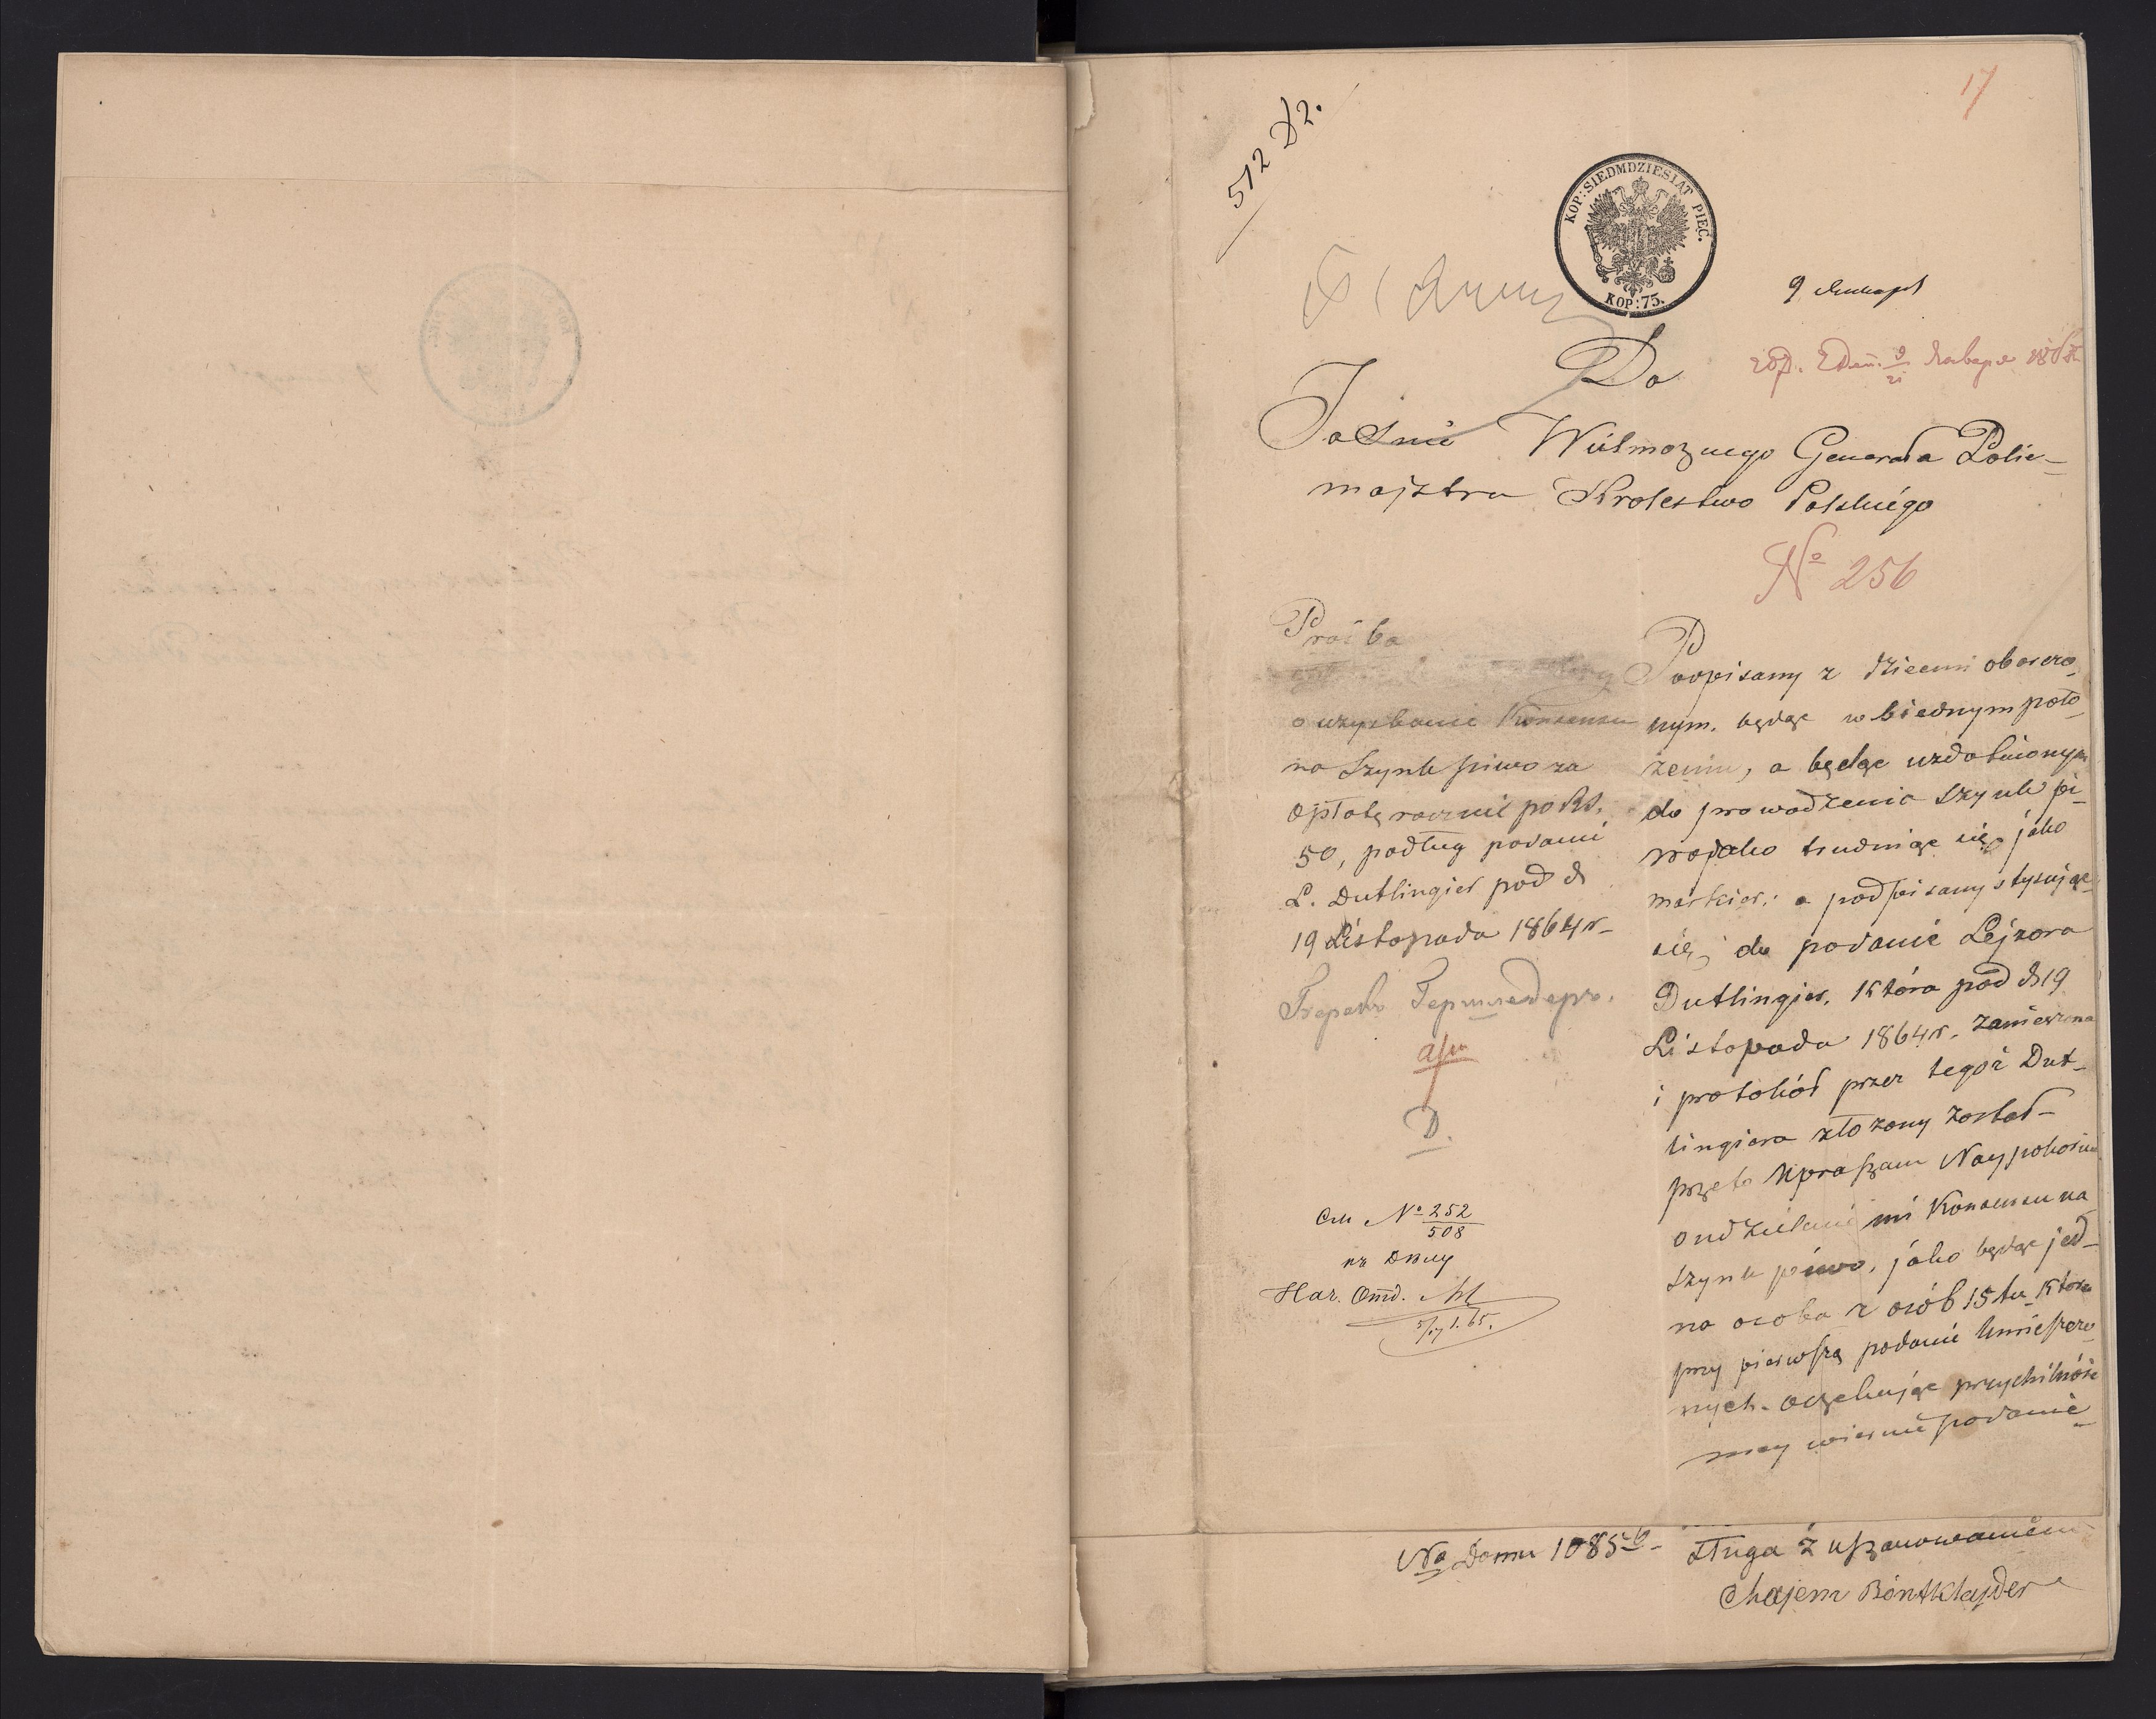 17
512 D2.
KOP: SIEDMDZIESIAT PIĘC.
KOP: 75.
9 Января
9/21 Января
Do
Jaśnie Wielmoznego Generała Polic-
majstra Krolestwo Polskiégo
№ 256
Prośba
o uzyskanie Konsensu
na Szynk piwo za
opłatę rocznie po Rs.
50, podług podanié
L. Dutlingier pod d
19 Listopada 1864 r-
См № 252/508
на Выш
Нач. Отд.
5/17 1. 65.
Popisany z dziecmi obarczo
nym. będąc w biednym poło
żeniu, a będąc uzdolnionym
do prowadzenia Szynk pi-
wo jako trudniąc się jako
markier: a podpisany stysując
się, do podanié Lejzora
Dutlingier. Która pod d 19
Listopada 1864 r. zaniesiona
i protokół przez tegoż Dut-
lingiera złożony został-
przeto Upraszam Naypokorni
o udzielenié mi Konsensu na
szynk piwo, jako będąc jed-
na osoba z osób 15tu Która
przy pierwszą podanié Umieszczo
nych. oczekując przychilność
may wiernié podanié
Na Domu 1085 b- Sługa z uszanowaniém
Chajem Bontklajder